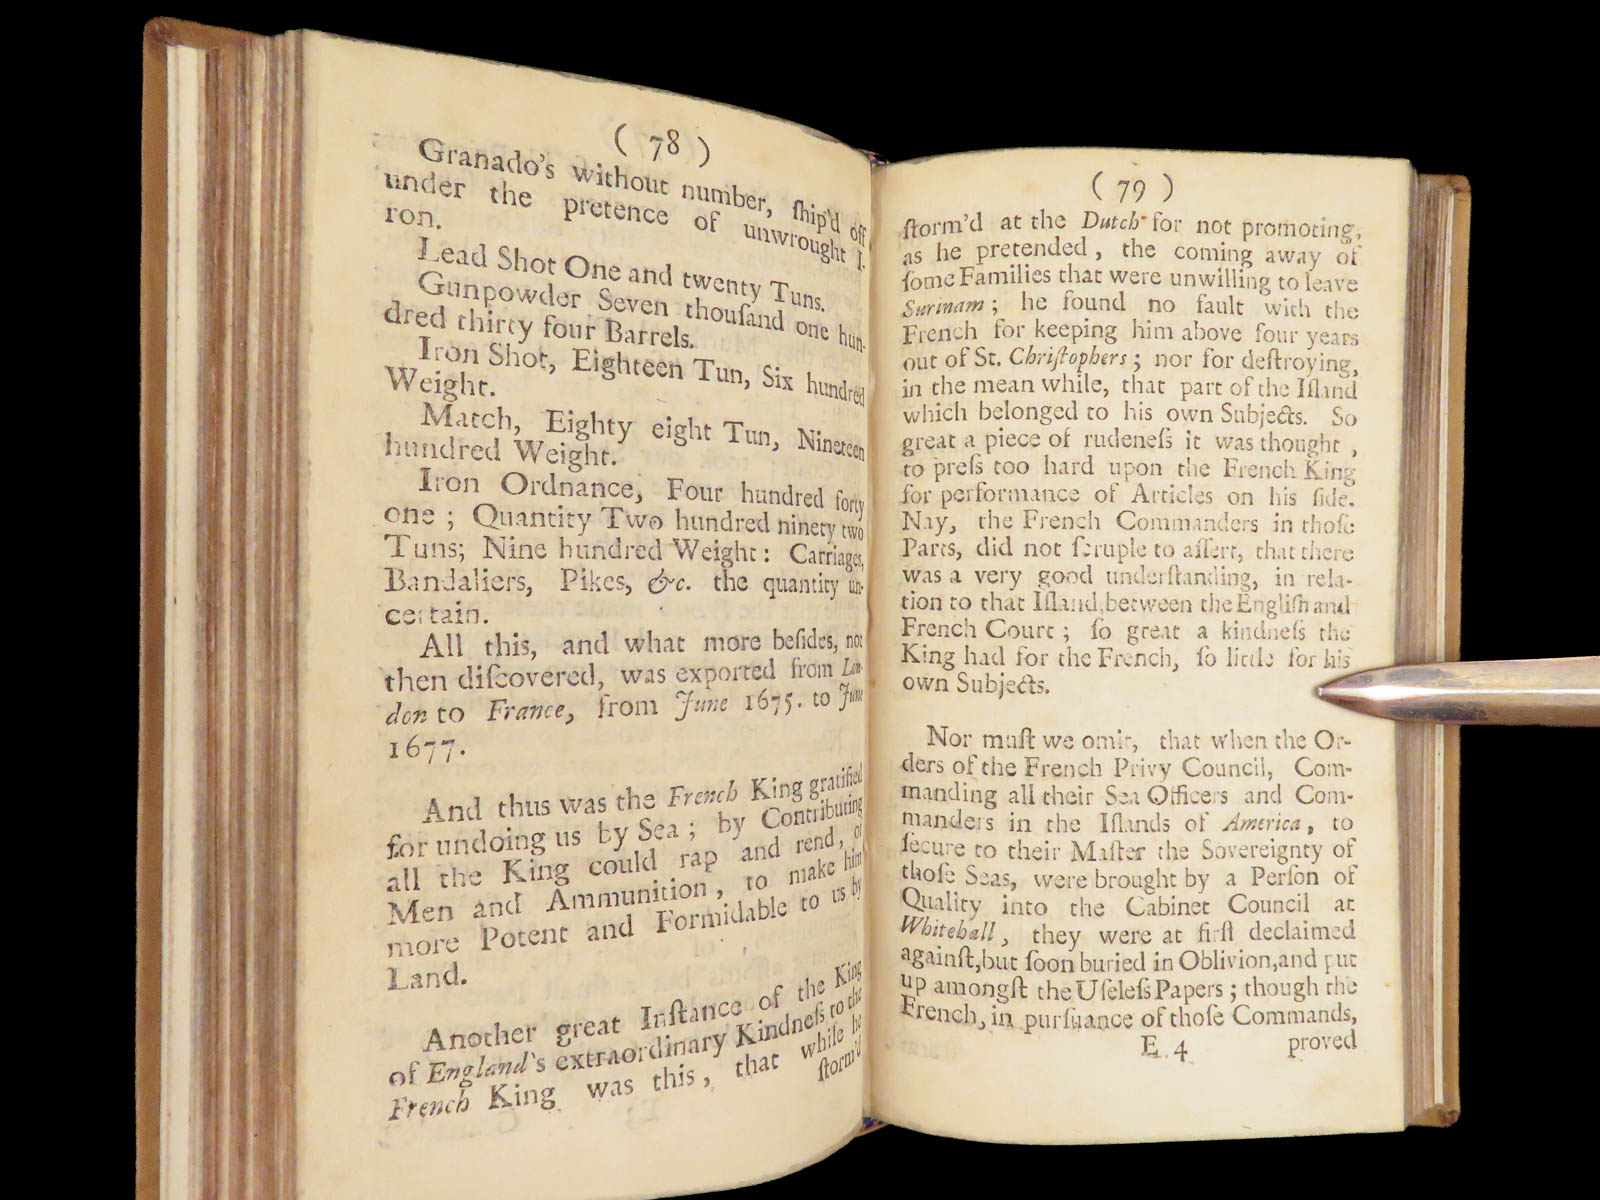 ( 78 )
Granado's without number, ſhip'd off
under the pretence of unwrought I-
ron.
Lead Shot One and twenty Tuns.
Gunpowder Seven thouſand one hun-
dred thirty four Barrels.
Iron Shot, Eighteen Tun, Six hundred
Weight.
Match, Eighty eight Tun, Nineteen
hundred Weight.
Iron Ordnance, Four hundred forty
one ; Quantity Two hundred ninety two
Tuns; Nine hundred Weight: Carriages,
Bandaliers, Pikes, &c. the quantity un-
certain.
All this, and what more beſides, not
then diſcovered, was exported from Lon-
don to France, from June 1675. to June
1677.
And thus was the French King gratified
for undoing us by Sea ; by Contributing
all the King could rap and rend, of
Men and Ammunition, to make him
more Potent and Formidable to us by
Land.
Another great Inſtance of the King
of England's extraordinary Kindneſs to the
French King was this, that while he
ſtorm'd
( 79 )
ſtorm'd at the Dutch for not promoting,
as he pretended, the coming away of
ſome Families that were unwilling to leave
Surinam ; he found no fault with the
French for keeping him above four years
out of St. Chriſtophers ; nor for deſtroying,
in the mean while, that part of the Iſland
which belonged to his own Subjects. So
great a piece of rudeneſs it was thought,
to preſs too hard upon the French King
for performance of Articles on his ſide.
Nay, the French Commanders in thoſe
Parts, did not ſcruple to aſſert, that there
was a very good underſtanding, in rela-
tion to that Iſland, between the Engliſh and
French Court ; ſo great a kindneſs the
King had for the French, ſo little for his
own Subjects.
Nor muſt we omit, that when the Or-
ders of the French Privy Council, Com-
manding all their Sea Officers and Com-
manders in the Iſlands of America, to
ſecure to their Maſter the Sovereignty of
thoſe Seas, were brought by a Perſon of
Quality into the Cabinet Council at
Whitehall, they were at firſt declaimed
againſt, but ſoon buried in Oblivion, and put
up amongſt the Uſeleſs Papers ; though the
French, in purſuance of thoſe Commands,
E 4 proved